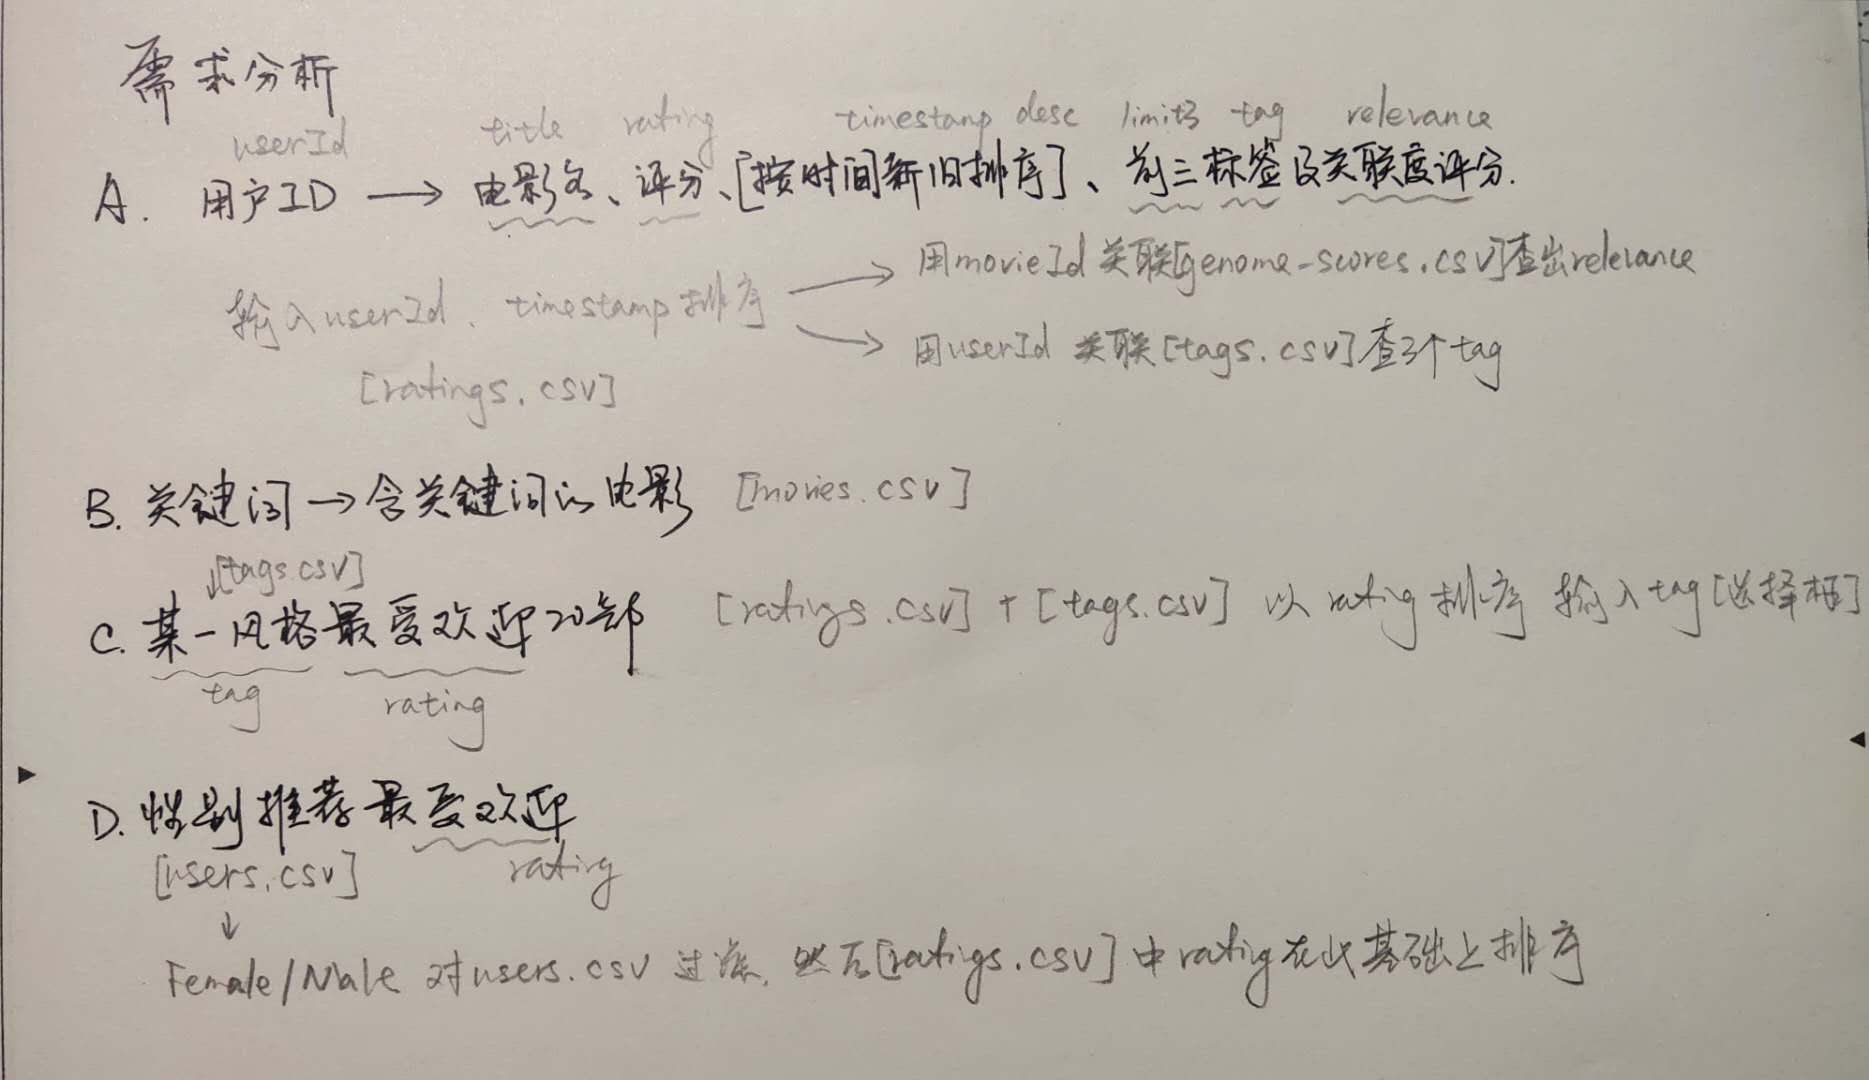 需求分析
userId title rating timestamp desc limit3 tag relevance
A. 用户ID → 电影名、评分、[按时间新旧排序]、前三标签及关联度评分.
用movieId 关联[genome-scores.csv]查出relevance
输入userId、timestamp排序
用userId 关联[tags.csv]查3个tag
[ratings.csv]
B. 关键词→含关键词的电影 [movies.csv]
↓[tags.csv]
C. 某一风格最受欢迎20部 [ratings.csv] + [tags.csv] 以 rating 排序 输入tag[选择框]
tag rating
D. 性别推荐最受欢迎
[users.csv] rating
↓
Female/Male 对users.csv 过滤, 然后[ratings.csv]中rating在此基础上排序